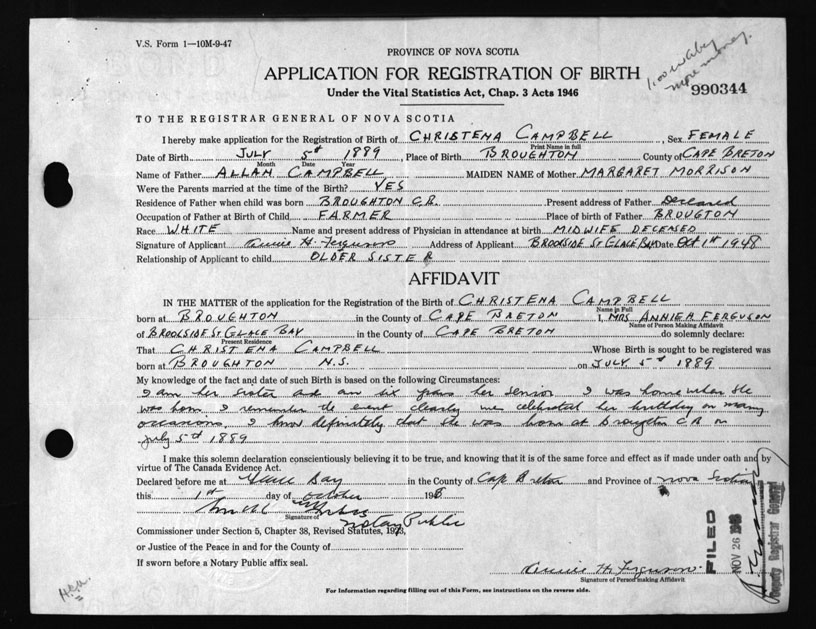 V.S. Form 1—10M-9-47
PROVINCE OF NOVA SCOTIA
APPLICATION FOR REGISTRATION OF BIRTH
Under the Vital Statistics Act, Chap. 3 Acts 1946
more money.
990344
TO THE REGISTRAR GENERAL OF NOVA SCOTIA
I hereby make application for the Registration of Birth of CHRISTENA CAMPBELL, Sex FEMALE
Print Name in full
Date of Birth JULY 5th 1889, Place of Birth BROUGHTON County of CAPE BRETON
Month Date Year
Name of Father ALLAN CAMPBELL MAIDEN NAME of Mother MARGARET MORRISON
Were the Parents married at the time of the Birth? YES
Residence of Father when child was born BROUGHTON C.B. Present address of Father Deceased
Occupation of Father at Birth of Child FARMER Place of birth of Father BROUGTON
Race WHITE Name and present address of Physician in attendance at birth MIDWIFE DECEASED
Signature of Applicant Annie H. Ferguson Address of Applicant BROOKSIDE ST GLACE BAY Date Oct 1st 1948
Relationship of Applicant to child OLDER SISTER
AFFIDAVIT
IN THE MATTER of the application for the Registration of the Birth of CHRISTENA CAMPBELL
Name in Full
born at BROUGHTON in the County of CAPE BRETON I, MRS ANNIE H FERGUSON
Name of Person Making Affidavit
of BROOKSIDE ST GLACE BAY in the County of CAPE BRETON do solemnly declare:
Present Residence
That CHRISTENA CAMPBELL Whose Birth is sought to be registered was
born at BROUGHTON N.S. on JULY 5th 1889
My knowledge of the fact and date of such Birth is based on the following Circumstances:
I am her sister and am six years her senior I was home when she
was born. I remember the event clearly we celebrated her birthday on many
occasions. I know definitely that she was born at Broughton C B on
July 5th 1889
I make this solemn declaration conscientiously believing it to be true, and knowing that it is of the same force and effect as if made under oath and by
virtue of The Canada Evidence Act.
Declared before me at Glace Bay in the County of Cape Breton and Province of Nova Scotia
this 1st day of October 1948
Signature of
Notary Public
Commissioner under Section 5, Chapter 38, Revised Statutes, 1923,
or Justice of the Peace in and for the County of
If sworn before a Notary Public affix seal.
Annie H. Ferguson
Signature of Person making Affidavit
FILED
NOV 26 1948
Deputy Registrar General
For Information regarding filling out of this Form, see instructions on the reverse side.